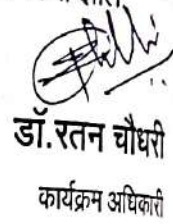 डॉ.रतन चौधरी
कार्यक्रम अधिकारी